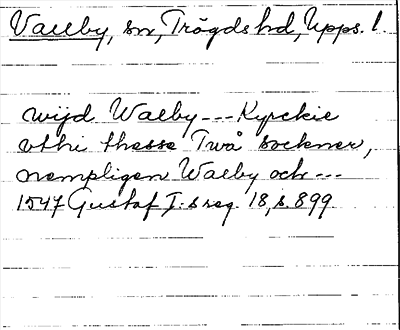 Vallby, sn, Trögds hd, Upps. l.
wijd Walby --- Kyrckie
vthi thesse Twå sockner,
nempligen Walby och ---
1547 Gustaf I:s reg. 18, s. 899